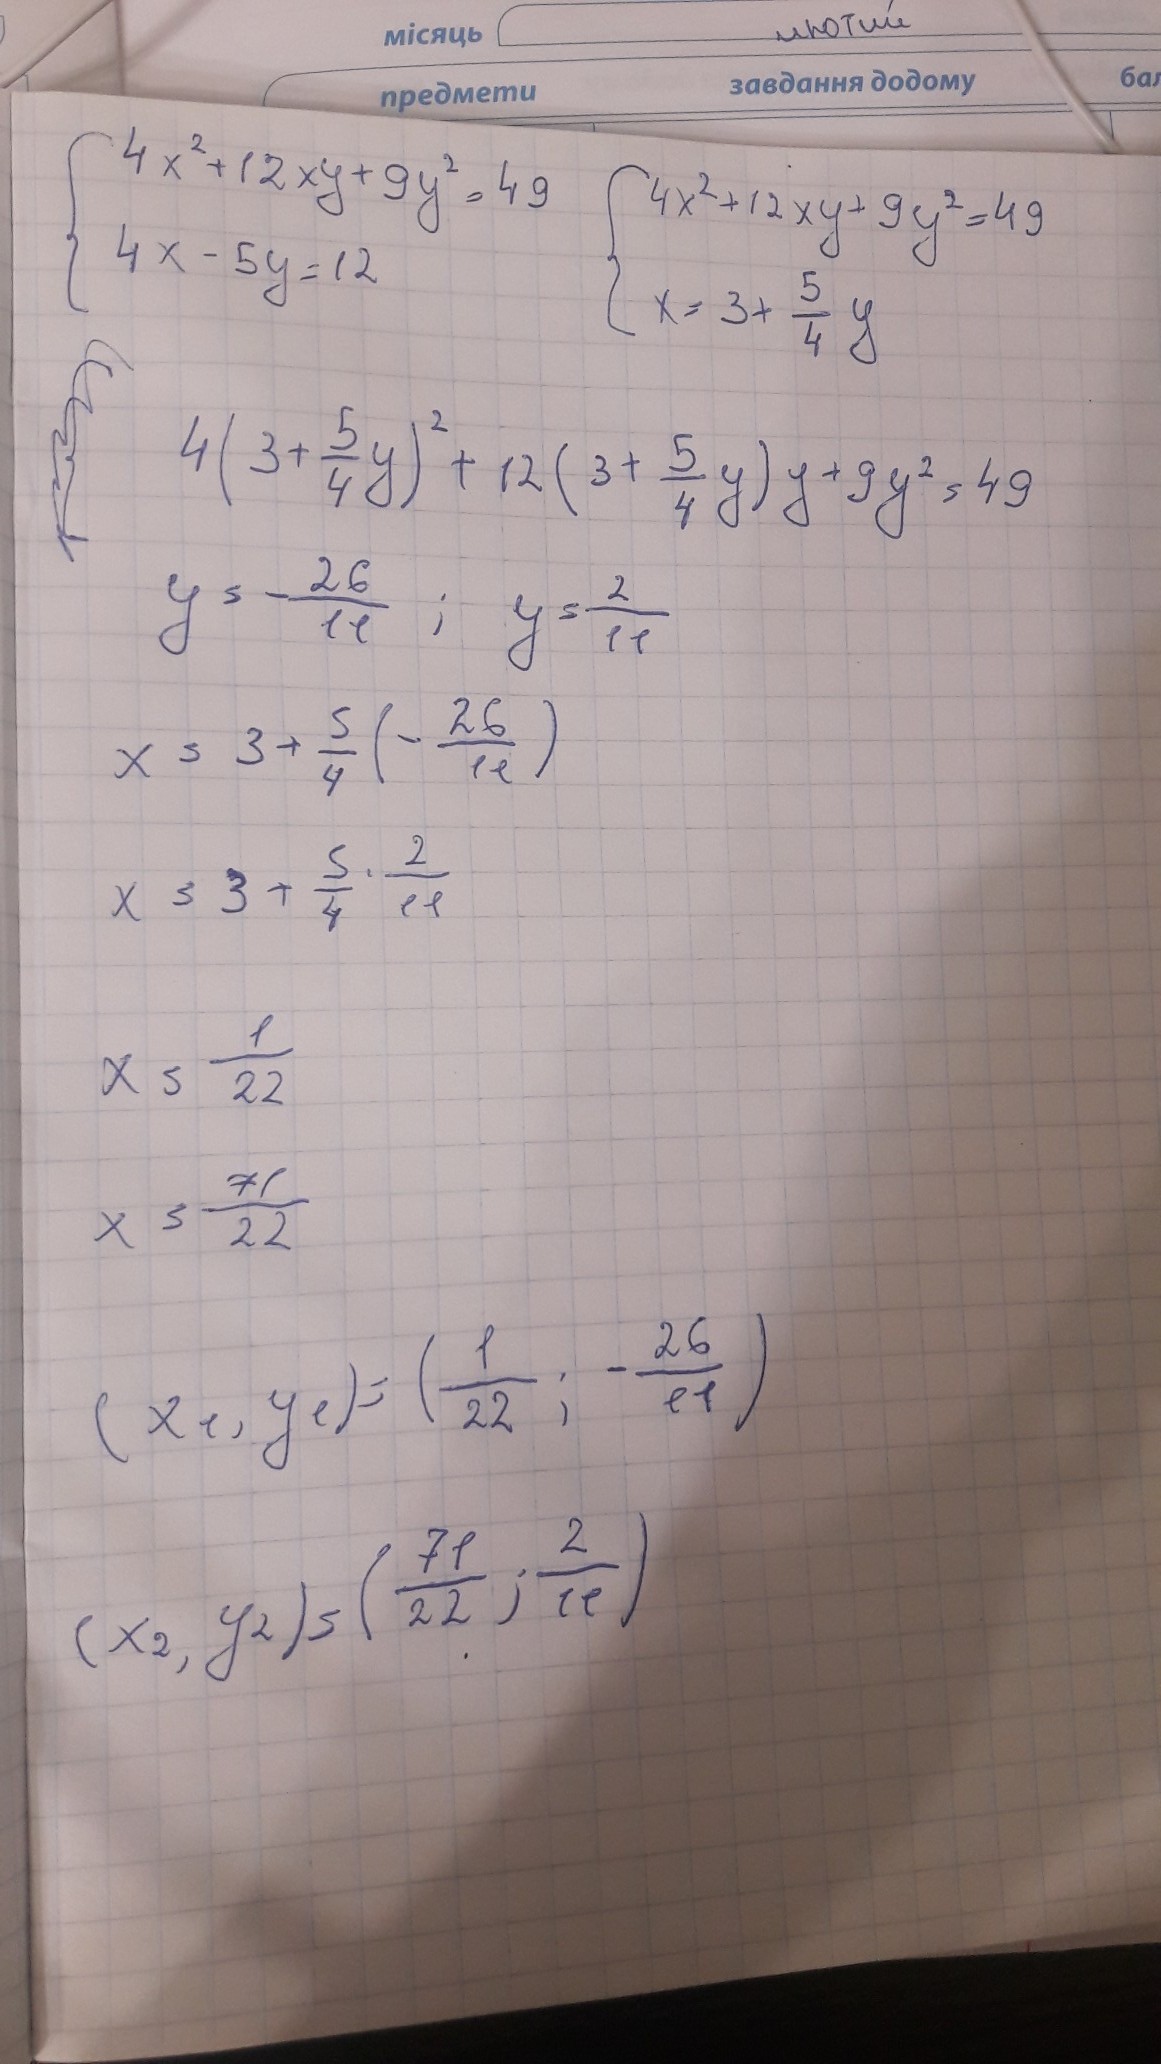 місяць лютий
предмети завдання додому
4x²+12xy+9y²=49 4x²+12xy+9y²=49
4x-5y=12 x=3+5/4 y
4(3+5/4y)²+12(3+5/4y)y+9y²=49
y=-26/11; y=2/11
x=3+5/4(-26/11)
x=3+5/4·2/11
x=1/22
x=71/22
(x₁,y₁)=(1/22;-26/11)
(x₂,y₂)=(71/22;2/11)